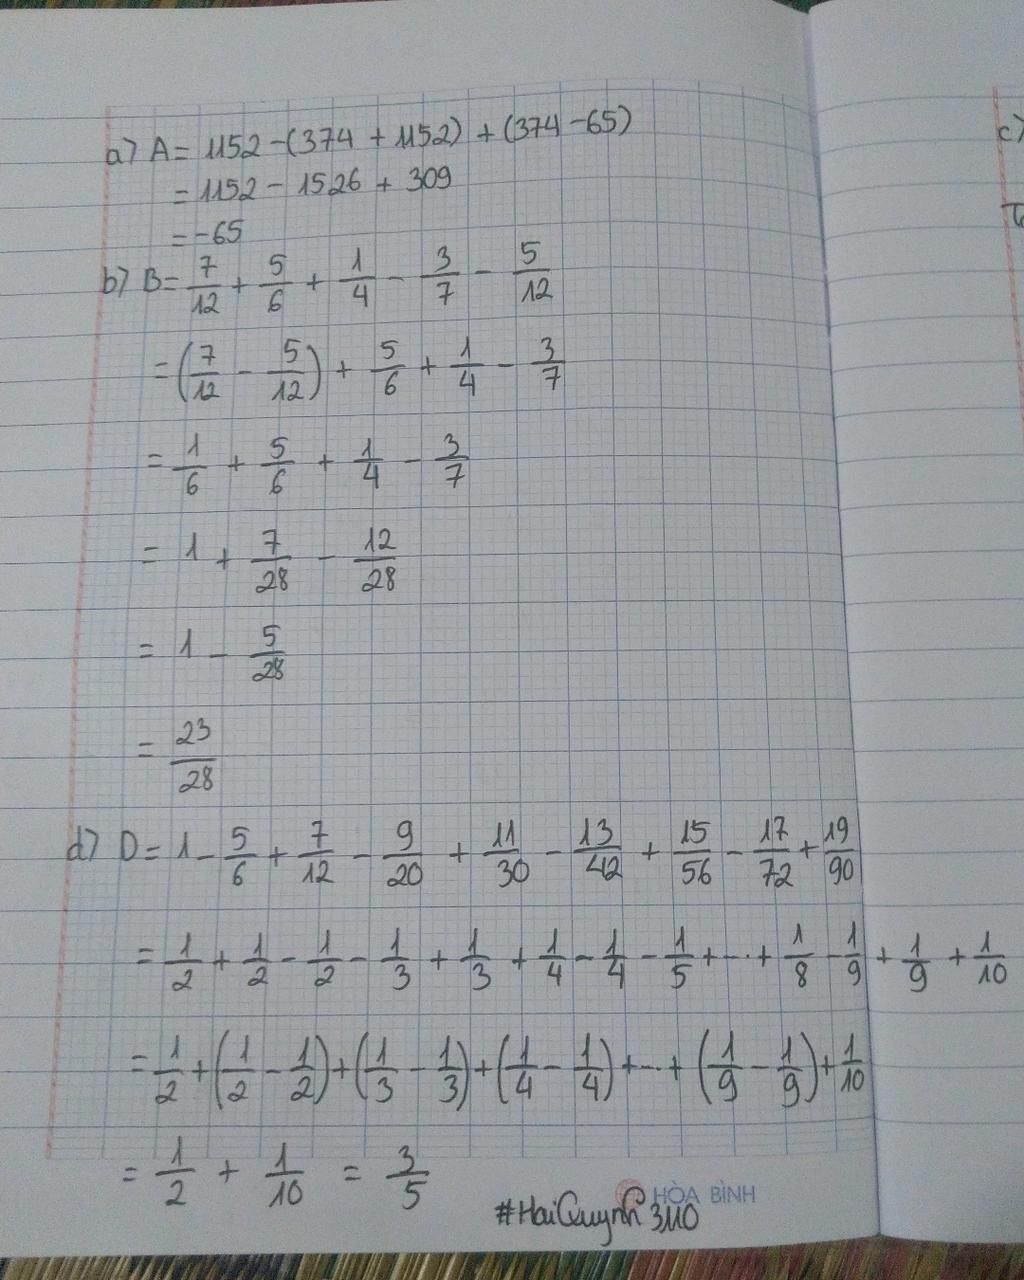 a) A = 1152 - (374 + 1152) + (374 - 65)
= 1152 - 1526 + 309
= -65
b) B = 7/12 + 5/6 + 1/4 - 3/7 - 5/12
= (7/12 - 5/12) + 5/6 + 1/4 - 3/7
= 1/6 + 5/6 + 1/4 - 3/7
= 1 + 7/28 - 12/28
= 1 - 5/28
= 23/28
d) D = 1 - 5/6 + 7/12 - 9/20 + 11/30 - 13/42 + 15/56 - 17/72 + 19/90
= 1/2 + 1/2 - 1/2 - 1/3 + 1/3 + 1/4 - 1/4 - 1/5 + ... + 1/8 - 1/9 + 1/9 + 1/10
= 1/2 + (1/2 - 1/2) + (1/3 - 1/3) + (1/4 - 1/4) + ... + (1/9 - 1/9) + 1/10
= 1/2 + 1/10 = 3/5
HÒA BÌNH
#HaiQuynh3110
c)